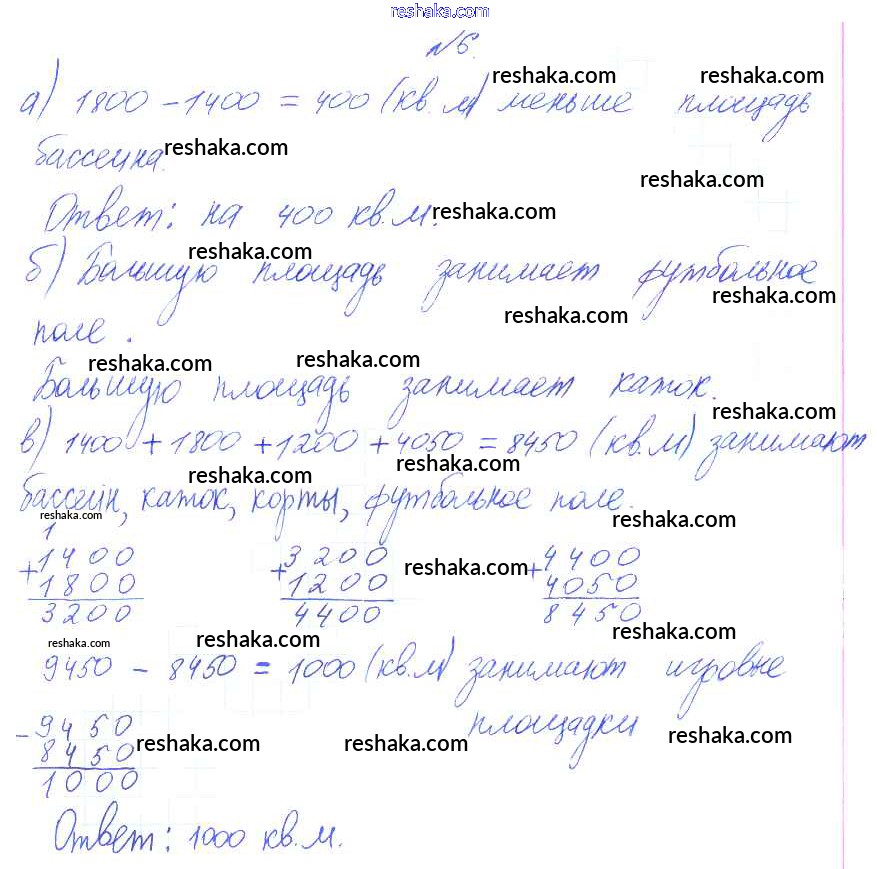 reshaka.com
№6.
reshaka.com reshaka.com
а) 1800 - 1400 = 400 (кв. м) меньше площадь
бассейна. reshaka.com
reshaka.com
Ответ: на 400 кв.м. reshaka.com
reshaka.com
б) Большую площадь занимает футбольное
reshaka.com
reshaka.com
поле.
reshaka.com reshaka.com
Большую площадь занимает каток.
reshaka.com
в) 1400 + 1800 + 1200 + 4050 = 8450 (кв.м) занимают
reshaka.com reshaka.com
бассейн, каток, корты, футбольное поле.
reshaka.com reshaka.com
1
+1400 +3200 +4400
1800 1200 reshaka.com 4050
3200 4400 8450
reshaka.com reshaka.com reshaka.com
9450 - 8450 = 1000 (кв.м) занимают игровые
площадки
-9450
8450 reshaka.com reshaka.com reshaka.com
1000
Ответ: 1000 кв.м.